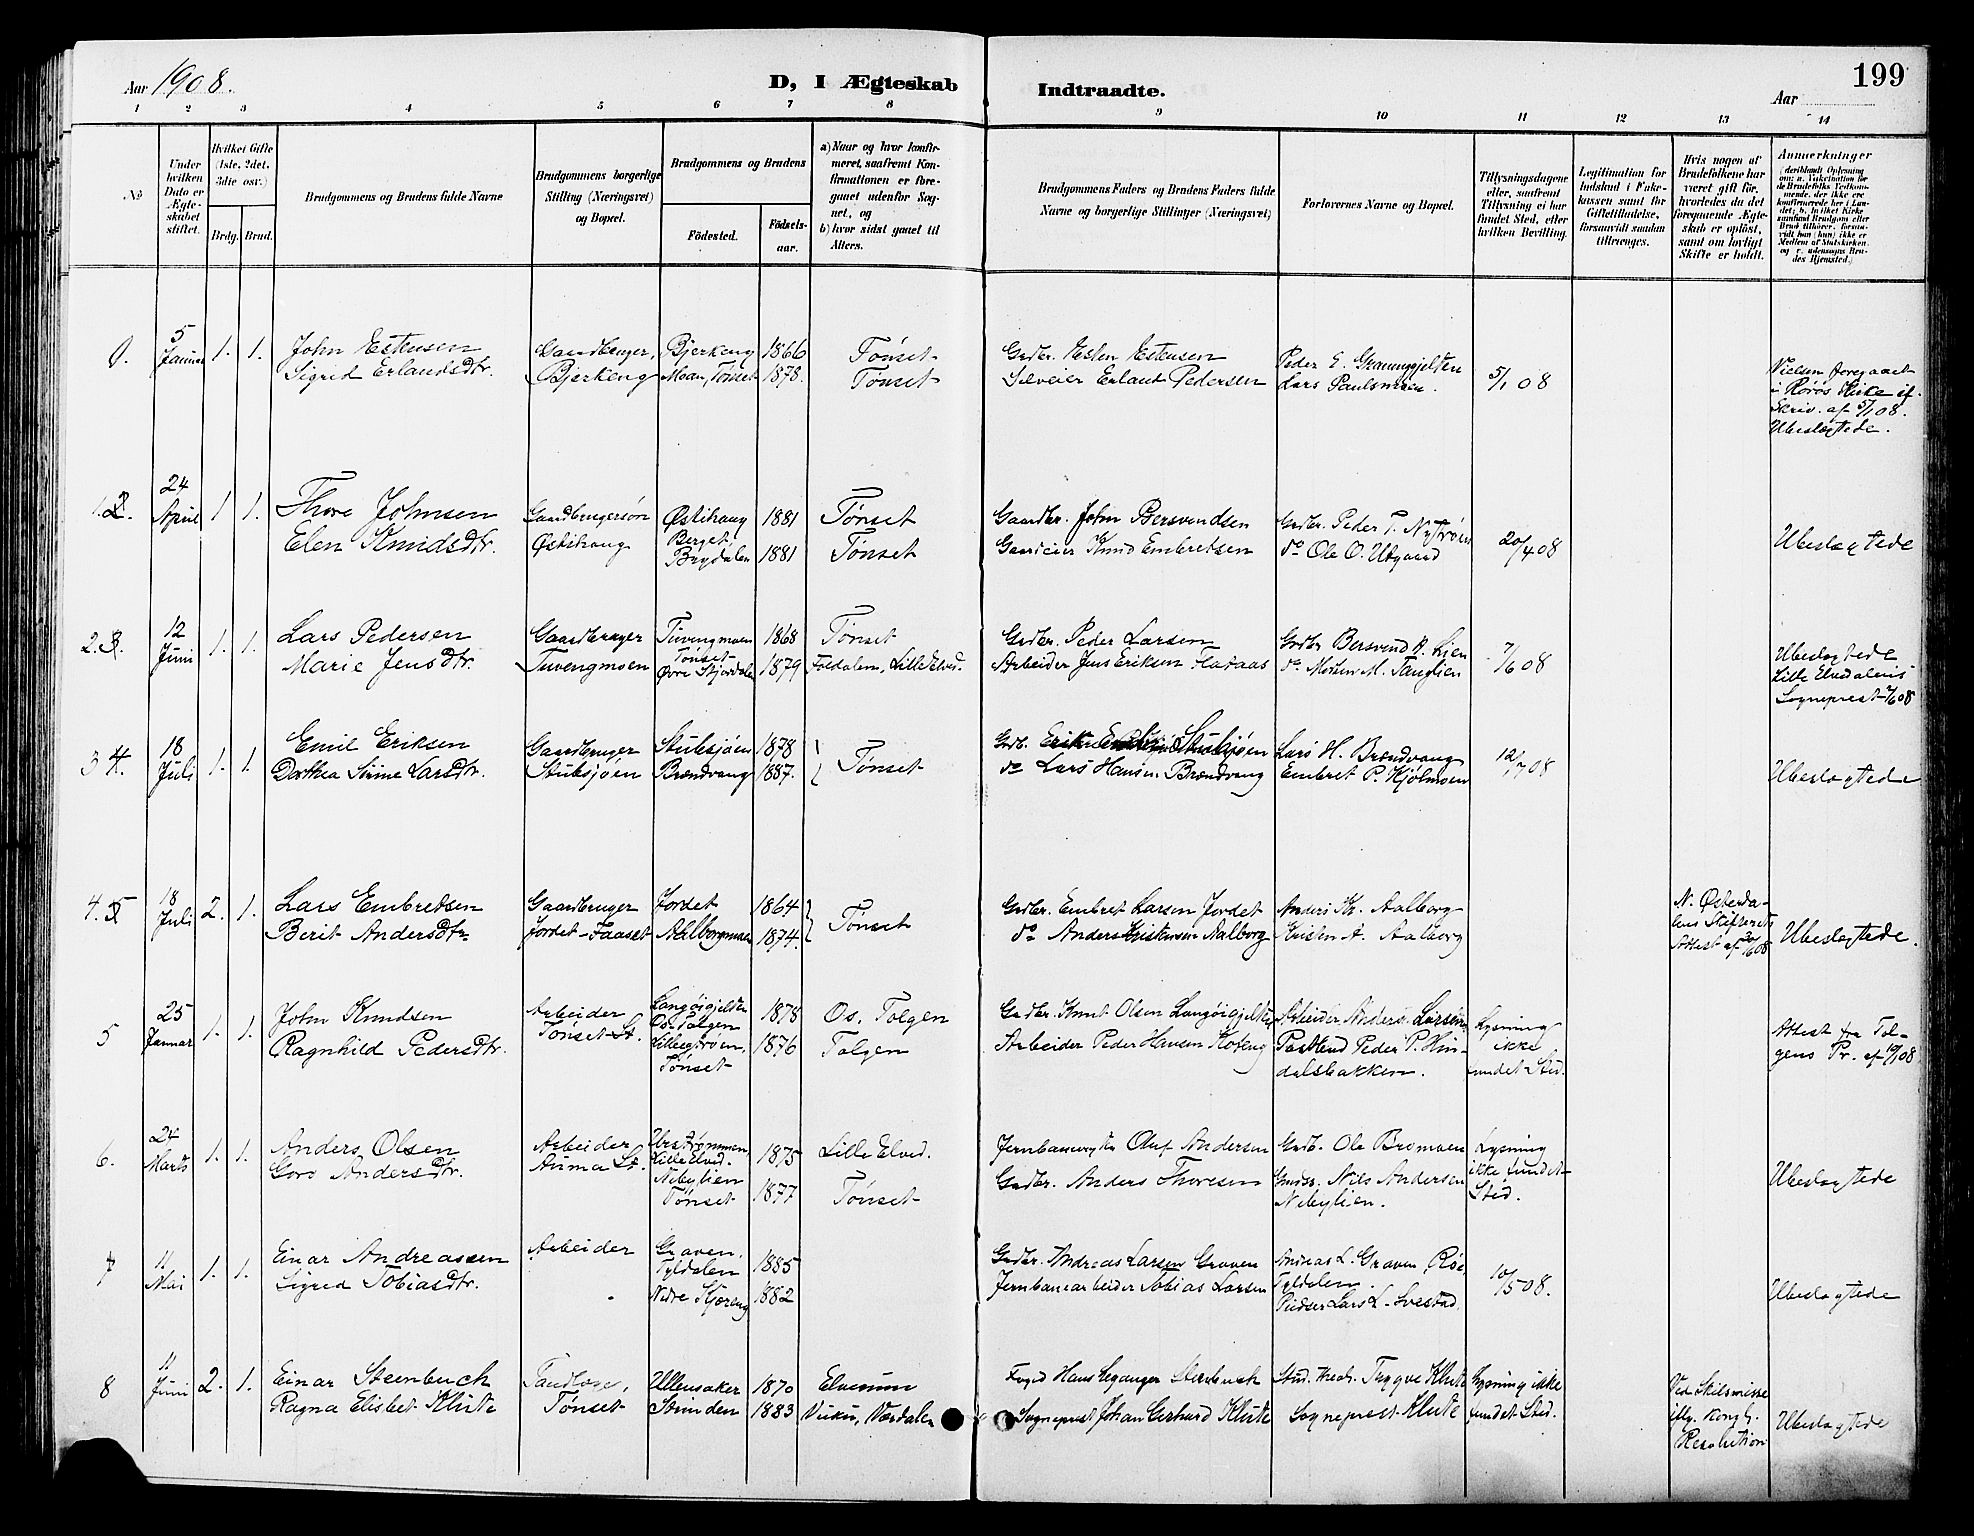 Aar 1908.
D, I Ægteskab
Indtraadte.
Aar
199
1 2 3 4 5 6 7 8 9 10 11 12 13 14
No
Under hvilken Dato er Ægteskabet stiftet.
Hvilket Gifte (1ste, 2det, 3die osv.)
Brdg. Brud.
Brudgommens og Brudens fulde Navne
Brudgommens borgerlige Stilling (Næringsvei) og Bopæl.
Brudgommens og Brudens
Fødested.
Fødselsaar.
a) Naar og hvor konfirmeret, saafremt Konfirmationen er foregaaet udenfor Sognet, og
b) hvor sidst gaaet til Alters.
Brudgommens Faders og Brudens Faders fulde Navne og borgerlige Stillinger (Næringsvei)
Forlovernes Navne og Bopæl.
Tillysningsdagene eller, saafremt Tillysning ei har fundet Sted, efter hvilken Bevilling.
Legitimation for Indskud i Enkekassen samt for Giftetilladelse, forsaavidt saadan tiltrænges.
Hvis nogen af Brudefolkene har været gift før, hvorledes da det foregaaende Ægteskab er opløst, samt om lovligt Skifte er holdt.
Anmærkninger
5 Januar 1. 1.
John Estensen
Sigrid Erlandsdtr.
Gaardbruger,
Bjerkeng
Bjerkeng 1866
Moan, Tønset 1878.
Tønset
Tønset
Grdbr. Esten Estensen
Selveier Erland Pedersen
Lars Paulsmoen.
5/1 08
Vielsen foregaaet
i Røros Kirke if.
Skriv. af 5/1 08.
Ubeslægtede.
1. 24 April 1 1.
Thore Johnsen
Elen Knudsdtr.
Gaardbrugersøn
Østihaug
Østihaug 1881
Berget
Brydalen 1881
Tønset
Tønset
Gaardbr. John Bersvendsen
Gaardeier Knud Embretsen
Grdbr. Peder P. Nytrøen
do Ole O. Utgaard
20/4 08
Ubeslægtede
2. 12 Juni 1. 1.
Lars Pedersen
Marie Jensdtr.
Gaardbruger
Tuvengmoen
Tuvengmoen 1868
Tønset
1879
Tønset
Foldalen, Lille Elved.
Grdbr. Peder Larsen
Arbeider Jens Eriksen
Grdbr Bersvend
do Morten M. Tanglien
7/6 08
Ubeslægtede
Lille Elvedalens
Sogneprest 2/6 08
3 4. 18 Juli 1. 1.
Emil Eriksen
Dorthea Sirine Larsdtr.
Gaardbruger
Stubsjøen
Stubsjøen 1878
Brændvang 1887.
Tønset
Grdb. Stubsjøen
do Lars Hansen Brændvang
Lars H. Brændvang
Embret P. Hjølmoen
12/7 08
Ubeslægtede
4. 5 18 Juli 2. 1.
Lars Embretsen
Berit Andersdtr
Gaardbruger
Jordet - Faaset
Jordet 1864
Aalborgmoen 1874.
Tønset
Grdbr. Embret Larsen Jordet
do Anders Kristensen Aalborg
Anders Kr. Aalborg
Kristen A. Aalborg
N. Østerdalens Skifterets
Attest af
Ubeslægtede.
5 25 Januar 1. 1.
John Knudsen
Ragnhild Pedersdtr.
Arbeider
Tønset St.
Langøigjelten
Os Tolgen 1878
Lillegtrøen, 1876
Tønset
Os, Tolgen
Tolgen
Grdbr. Knut Olsen Langøigjelten
Arbeider Peder Hansen Koteng
Arbeider Anders Larsen
Postbud Peder P. Hindalsbakken.
Lysning
ikke
fundet Sted.
Attest fra Tolgens Pr. af 10/1 08
6. 24 Marts 1. 1.
Anders Olsen
Goro Andersdtr.
Arbeider
Auma St.
Urstrømmen
Lille Elved. 1875
Nebylien
Tønset 1877
Lille Elved.
Tønset
Jernbanevogter Oluf Andersen
Grdbr. Anders Thoresen
Grdb. Ole Bromoen
Grdbr. Nils Andersen
Nebylien.
Lysning
ikke fundet
Sted.
Ubeslægtede
7 11 Mai 1. 1.
Einar Andreassen
Sigrid Tobiasdtr.
Arbeider
Graven,
Tyldalen 1885
Nedre Kjøreng 1882
Grdbr. Andreas Larsen Graven
Jernbanearbeider Tobias Larsen
Andreas L. Graven,
Tyldalen.
Lars L. Svestad,
10/5 08.
Ubeslægtede
8 11 Juni 2. 1.
Einar Steenbuch
Ragna Elisbet Klüte
Tandlæge,
Tønset
Ullensaker 1870
Strinden 1883
Elverum
Vuku, Værdalen
Foged Hans Steenbuch
Sogneprest Johan Gerhard Klüte
Stud. theol. Trygve Klüte
Sogneprest Klüte
Lysning ikke
fundet Sted.
Ved Skilsmisse
iflg. Kongl.
Resolution
Ubeslægtede